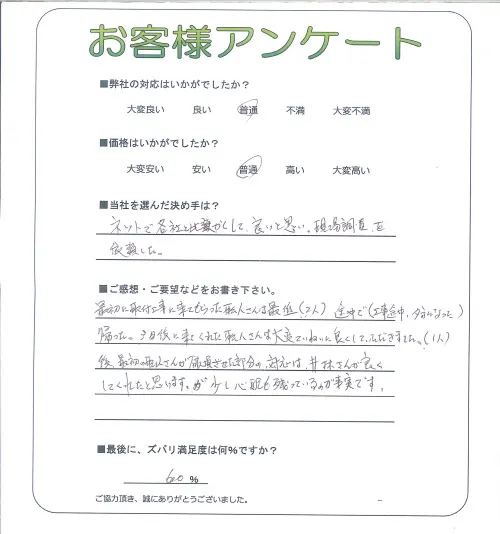 お客様アンケート
■弊社の対応はいかがでしたか？
大変良い 良い 普通 不満 大変不満
■価格はいかがでしたか？
大変安い 安い 普通 高い 大変高い
■当社を選んだ決め手は？
ネットで各社と比較して、良いと思い。現場調査、
依頼した。
■ご感想・ご要望などをお書き下さい。
最初に取付工事に来てもらった職人さんは最低(2人) 途中で(工事途中、夕方になった)
帰った。3日後に来てくれた職人さんは大変ていねいに良くしていただきました。(1人)
後、最初の職人さんが破損させた部分の対応は、井林さんが良く
してくれたと思います。が少し心配も残っているのが事実です。
■最後に、ズバリ満足度は何%ですか？
60 %
ご協力頂き、誠にありがとうございました。